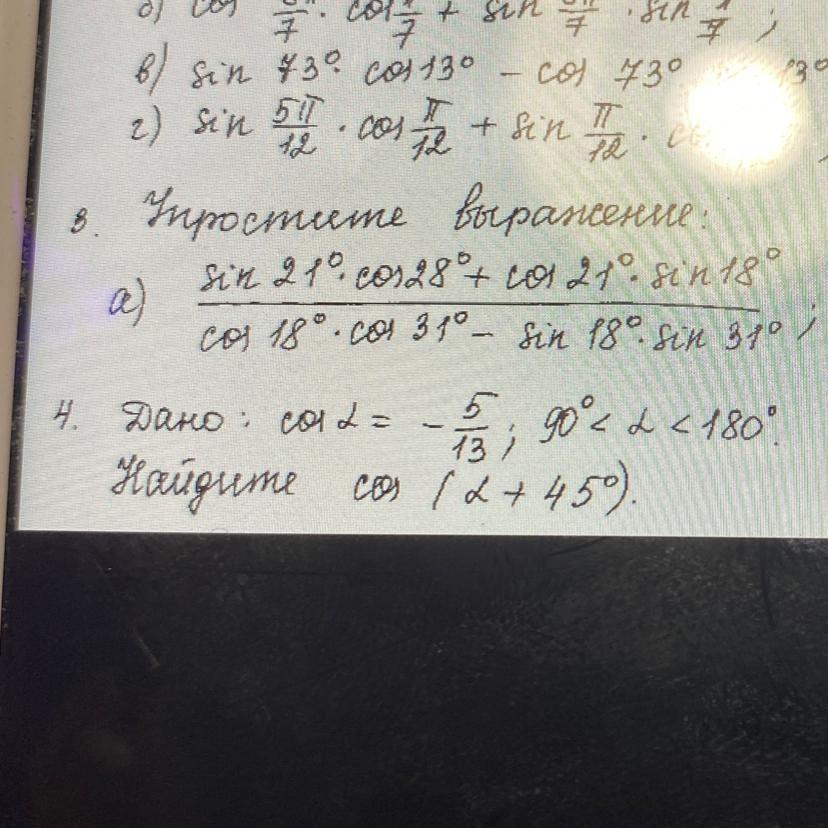 б) cos /7 · cos /7 + sin /7 · sin /7 ;
в) sin 73° · cos 13° - cos 73° 13°
г) sin 5π/12 · cos π/12 + sin π/12 ·
3. Упростите выражение:
а) (sin 21° · cos 28° + cos 21° · sin 18°) / (cos 18° · cos 31° - sin 18° · sin 31°) ;
4. Дано: cos α = - 5/13 ; 90° < α < 180°.
Найдите cos (α + 45°).